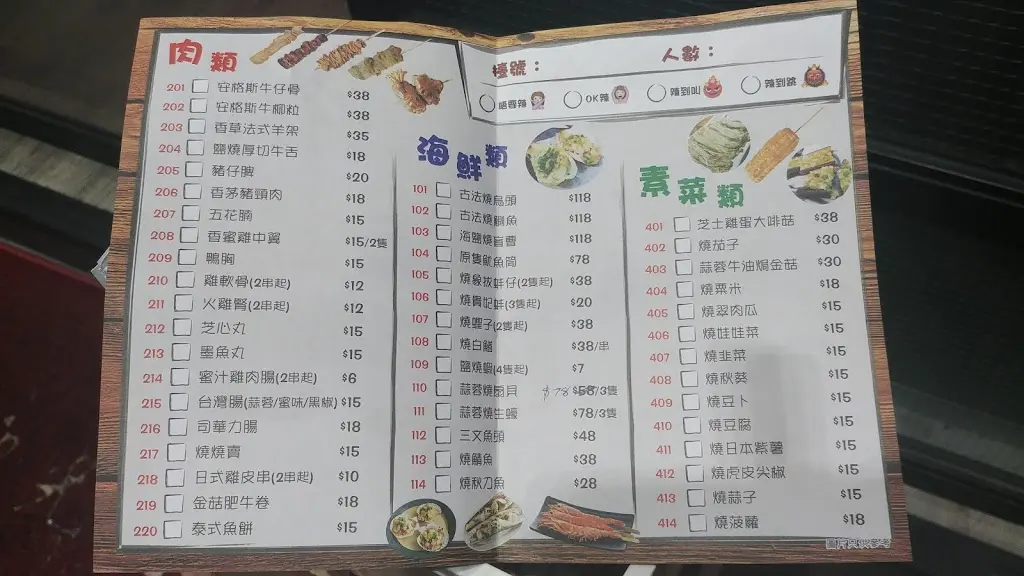 肉類
201 安格斯牛仔骨 $38
202 安格斯牛柳粒 $38
203 香草法式羊架 $35
204 鹽燒厚切牛舌 $18
205 豬仔脾 $20
206 香茅豬頸肉 $18
207 五花腩 $15
208 香蜜雞中翼 $15/2隻
209 鴨胸 $15
210 雞軟骨(2串起) $12
211 火雞腎(2串起) $12
212 芝心丸 $15
213 墨魚丸 $15
214 蜜汁雞肉腸(2串起) $6
215 台灣腸(蒜蓉/蜜味/黑椒) $15
216 司華力腸 $18
217 燒燒賣 $15
218 日式雞皮串(2串起) $10
219 金菇肥牛卷 $18
220 泰式魚餅 $15
檯號： 人數：
唔要辣 OK辣 辣到叫 辣到跳
海鮮類
101 古法燒烏頭 $118
102 古法燒鯛魚 $118
103 海鹽燒盲曹 $118
104 原隻魷魚筒 $78
105 燒象拔蚌仔(2隻起) $38
106 燒貴妃蚌(3隻起) $20
107 燒蟶子(2隻起) $38
108 燒白鱔 $38/串
109 鹽燒蝦(4隻起) $7
110 蒜蓉燒扇貝 $78 $58/3隻
111 蒜蓉燒生蠔 $78/3隻
112 三文魚頭 $48
113 燒鯖魚 $38
114 燒秋刀魚 $28
素菜類
401 芝士雞蛋大啡菇 $38
402 燒茄子 $30
403 蒜蓉牛油焗金菇 $30
404 燒粟米 $18
405 燒翠肉瓜 $15
406 燒娃娃菜 $15
407 燒韭菜 $15
408 燒秋葵 $15
409 燒豆卜 $15
410 燒豆腐 $15
411 燒日本紫薯 $15
412 燒虎皮尖椒 $15
413 燒蒜子 $15
414 燒菠蘿 $18
圖片只供參考